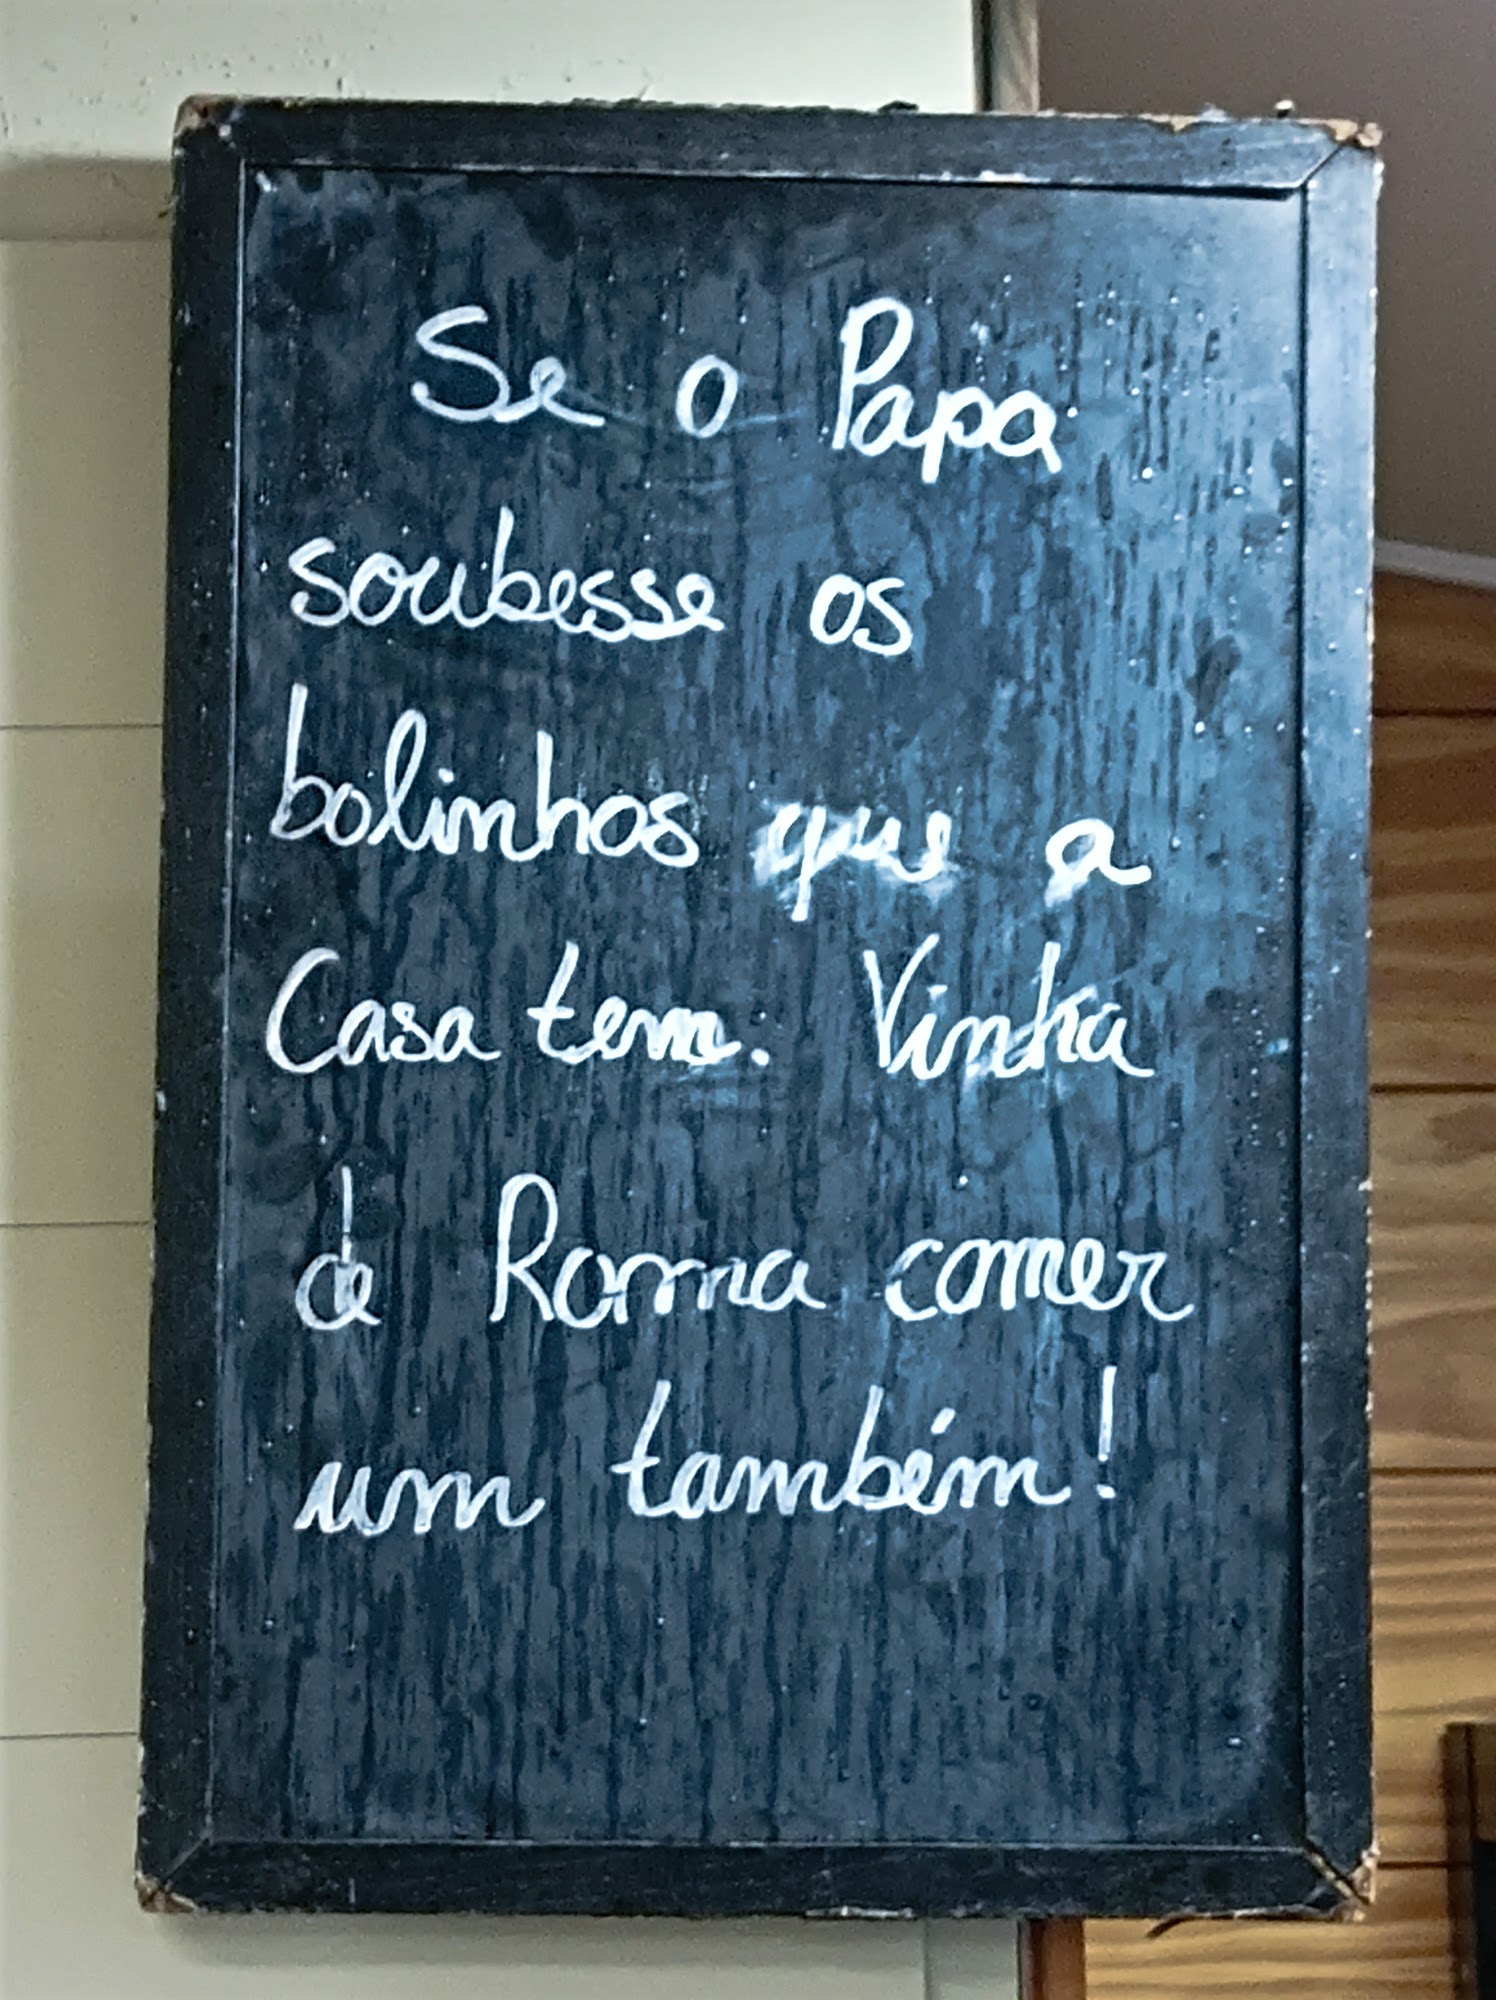 Se o Papa
soubesse os
bolinhos que a
Casa tem. Vinha
de Roma comer
um também!